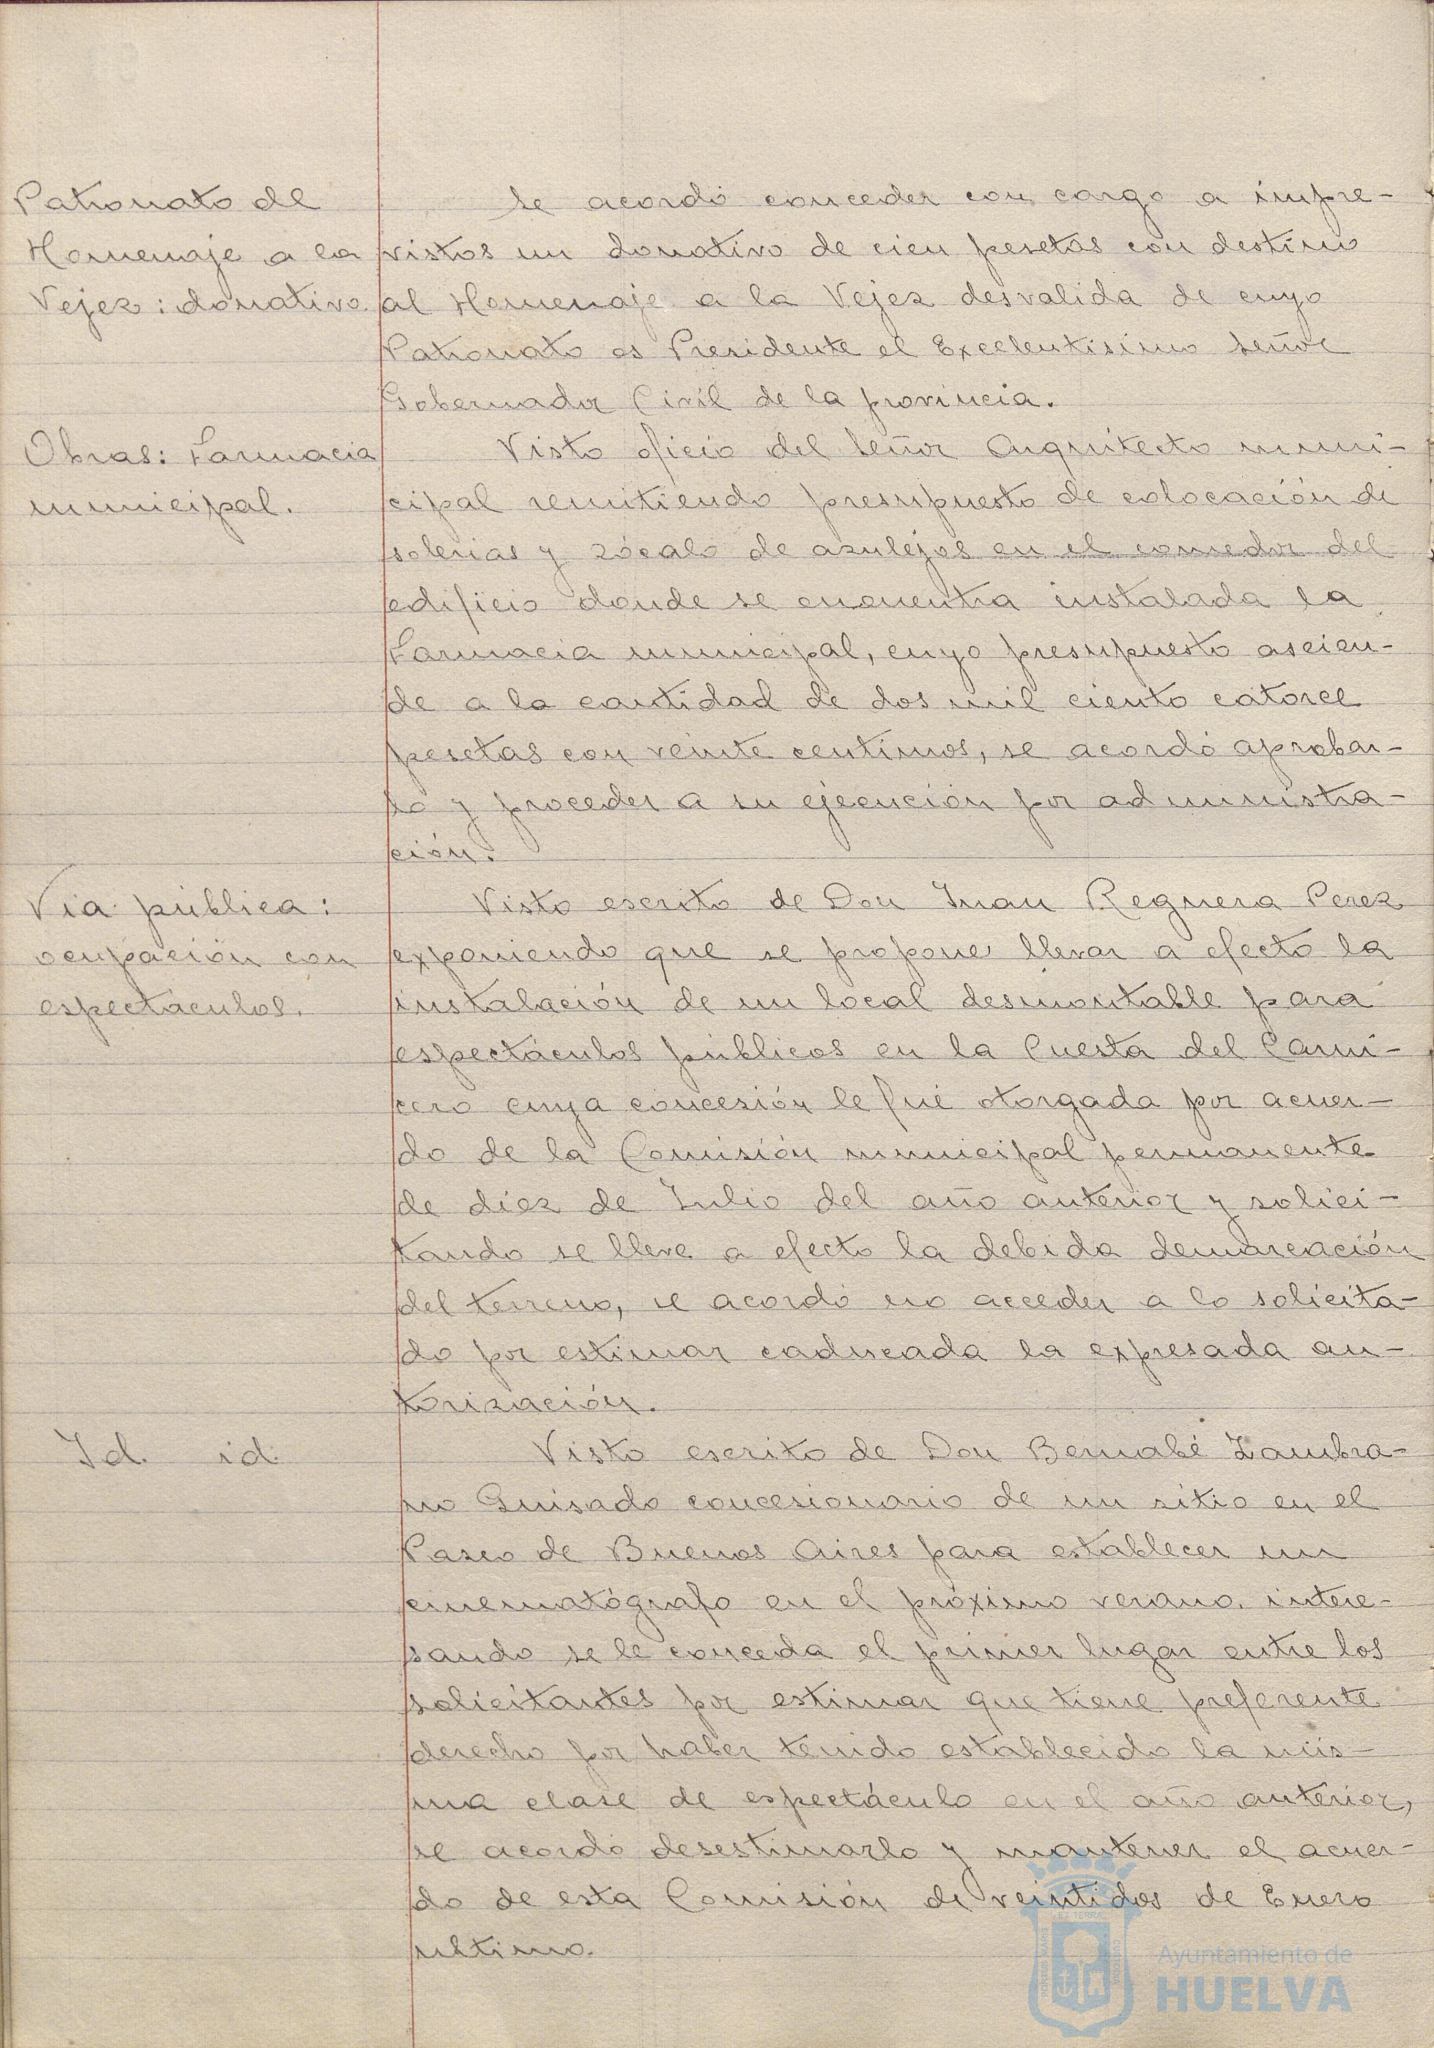 Patronato de
Homenaje a la
Vejez: donativo.
Se acordó conceder con cargo a impre-
vistos un donativo de cien pesetas con destino
al Homenaje a la Vejez desvalida de cuyo
Patronato es Presidente el Excelentísimo Señor
Gobernador Civil de la provincia.
Obras: Farmacia
municipal.
Visto oficio del Señor Arquitecto muni-
cipal remitiendo presupuesto de colocación de
solerias y zócalo de azulejos en el comedor del
edificio donde se encuentra instalada la
Farmacia municipal, cuyo presupuesto ascien-
de a la cantidad de dos mil ciento catorce
pesetas con veinte centimos, se acordó aprobar-
lo y proceder a su ejecución por administra-
ción.
Via pública:
ocupación con
espectáculos.
Visto escrito de Don Juan Reguera Perez
exponiendo que se propone llevar a efecto la
instalación de un local desmontable para
espectáculos públicos en la Cuesta del Carni-
cero cuya concesión le fué otorgada por acuer-
do de la Comisión municipal permanente
de diez de Julio del año anterior y solici-
tando se lleve a efecto la debida demarcación
del terreno, se acordó no acceder a lo solicita-
do por estimar caducada la expresada au-
torización.
Id. id.
Visto escrito de Don Bernabé Zambra-
no Guisado concesionario de un sitio en el
Paseo de Buenos Aires para establecer un
cinematógrafo en el próximo verano. intere-
sando se le conceda el primer lugar entre los
solicitantes por estimar que tiene preferente
derecho por haber tenido establecido la mis-
ma clase de espectáculo en el año anterior,
se acordó desestimarlo y mantener el acuer-
do de esta Comisión de veintidos de Enero
ultimo.
Ayuntamiento de
HUELVA